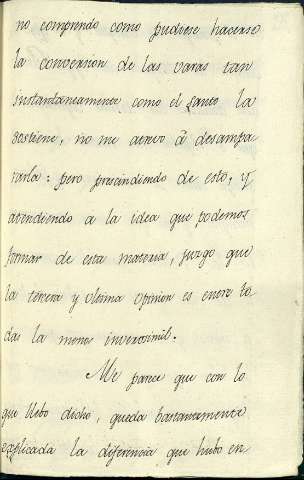 no comprendo como pudiese hacerse
la conversion de las varas tan
instantaneamente como el Santo la
sostiene, no me atrevo â desampa
rarla: pero prescindiendo de esto, y
atendiendo a la idea que podemos
formar de esta materia, juzgo que
la tercera y ultima opinion es entre to
das la menos inverosimil.
Me parece que con lo
que llebo dicho, queda bastantemente
explicada la diferencia que hubo en